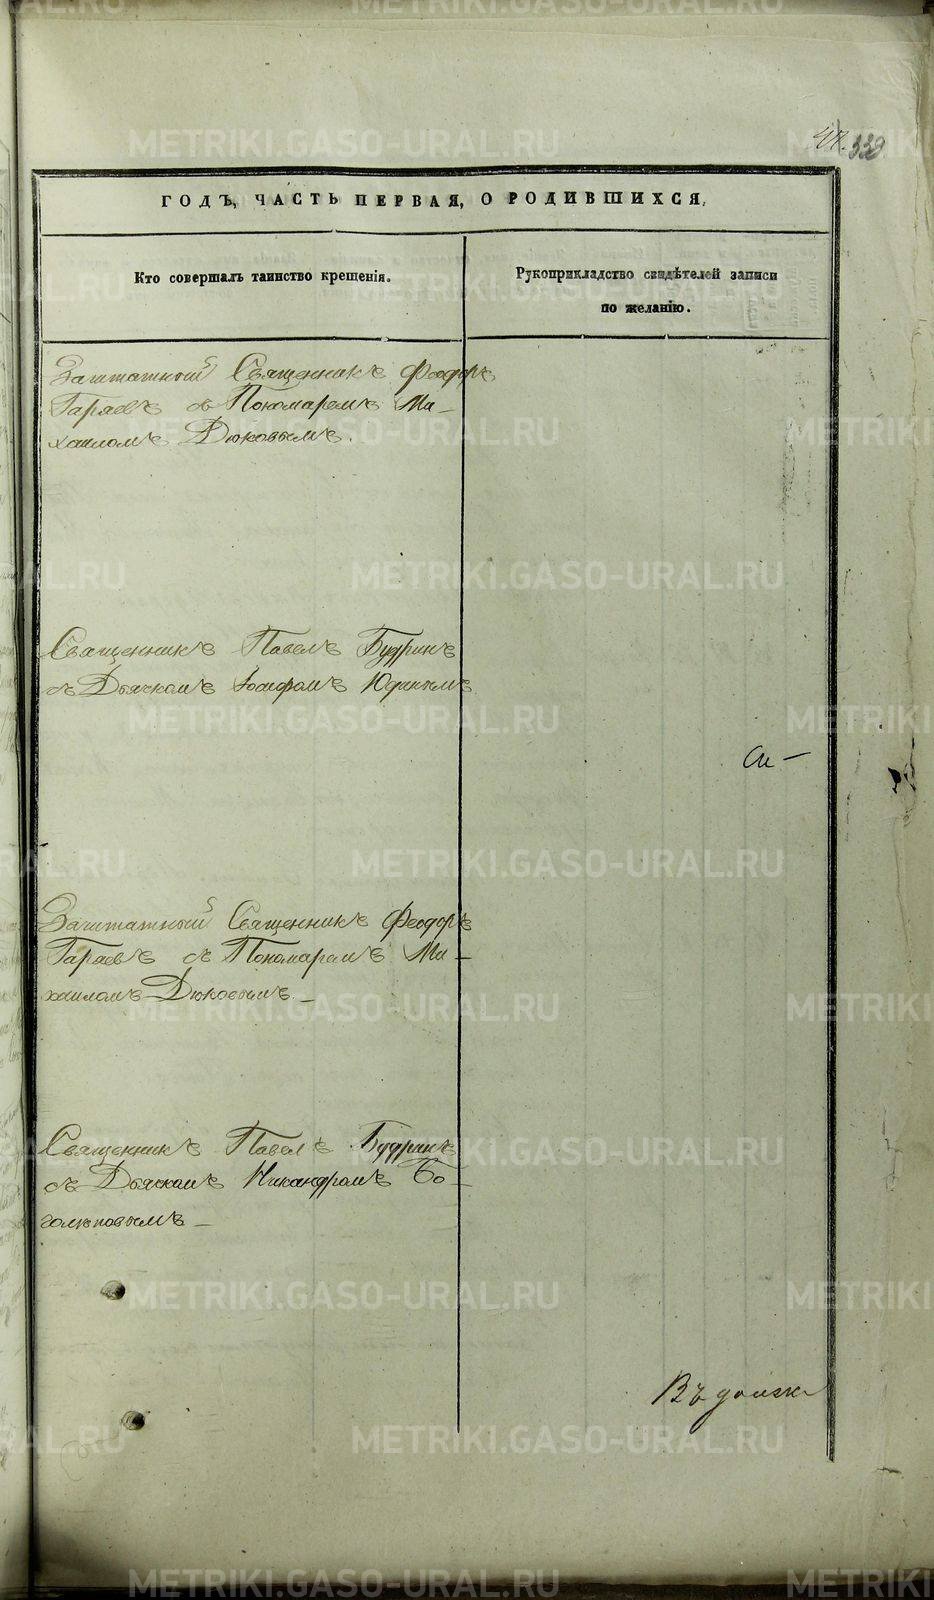 47. 338
ГОДЪ, ЧАСТЬ ПЕРВАЯ, О РОДИВШИХСЯ,
Кто совершалъ таинство крещенія.
Рукоприкладство свидѣтелей записи
по желанію.
Заштатный Священникъ Феодоръ
Гаряевъ съ Пономаремъ Ми-
хаиломъ Дюковымъ.
Священникъ Павелъ Будринъ
съ Дьячкомъ Іосифомъ Юдинымъ
Заштатный Священникъ Феодоръ
Гаряевъ съ Пономаремъ Ми-
хаиломъ Дюковымъ. -
Священникъ Павелъ Будринъ
съ Дьячкомъ Никандромъ Бо-
голеповымъ -
Въ
METRIKI.GASO-URAL.RU